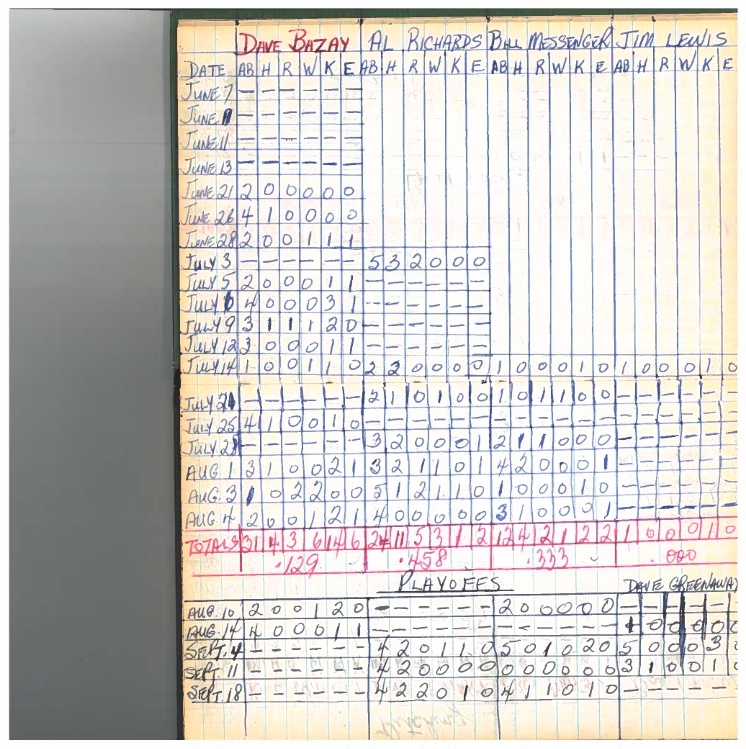 DAVE BAZAY AL RICHARDS BILL MESSENGER JIM LEWIS
DATE AB H R W K E AB H R W K E AB H R W K E AB H R W K E
JUNE 7 — — — — — —
JUNE — — — — — —
JUNE 11 — — — — — —
JUNE 13 — — — — — —
JUNE 21 2 0 0 0 0 0
JUNE 26 4 1 0 0 0 0
JUNE 28 2 0 0 1 1 1
JULY 3 — — — — — — 5 3 2 0 0 0
JULY 5 2 0 0 0 1 1 — — — — — —
JULY 6 4 0 0 0 3 1 — — — — — —
JULY 9 3 1 1 1 2 0 — — — — — —
JULY 12 3 0 0 0 1 1 — — — — — —
JULY 14 1 0 0 1 1 0 2 2 0 0 0 0 1 0 0 0 1 0 1 0 0 0 1 0
JULY — — — — — — 2 1 0 1 0 0 1 0 1 1 0 0 — — — — — —
JULY 25 4 1 0 0 1 0 — — — — — — — — — — — — — — — — — —
JULY — — — — — — 3 2 0 0 0 1 2 1 1 0 0 0 — — — — — —
AUG 1 3 1 0 0 2 1 3 2 1 1 0 1 4 2 0 0 0 1 — — — — — —
AUG. 3 1 0 2 2 0 0 5 1 2 1 1 0 1 0 0 0 1 0 — — — — — —
AUG 4 2 0 0 1 2 1 4 0 0 0 0 0 3 1 0 0 0 1 — — — — — —
TOTALS 31 4 3 6 14 6 24 11 5 3 1 2 12 4 2 1 2 2 1 0 0 0 1 0
.129 .458 .333 .000
PLAYOFFS DAVE GREENAWAY
AUG. 10 2 0 0 1 2 0 — — — — — — 2 0 0 0 0 0 — — — — —
AUG. 14 4 0 0 0 1 1 — — — — — — — — — — — — 1 0 0 0 0 0
SEPT. 4 — — — — — — 4 2 0 1 1 0 5 0 1 0 2 0 5 0 0 0 3 0
SEPT. 11 — — — — — — 4 2 0 0 0 0 0 0 0 0 0 0 3 1 0 0 1 0
SEPT. 18 — — — — — — 4 2 2 0 1 0 4 1 1 0 1 0 — — — — — —